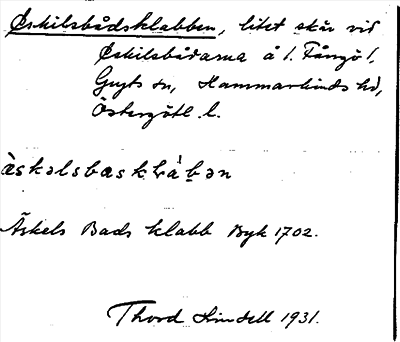 Eskilsbådsklabben, litet skär vid
Eskilsbådarna å l. Fångö l,
Gryts sn, Hammarkinds hd,
Östergötl. l.
Äskels Bads klabb Byk 1702.
Thord Lindell 1931.